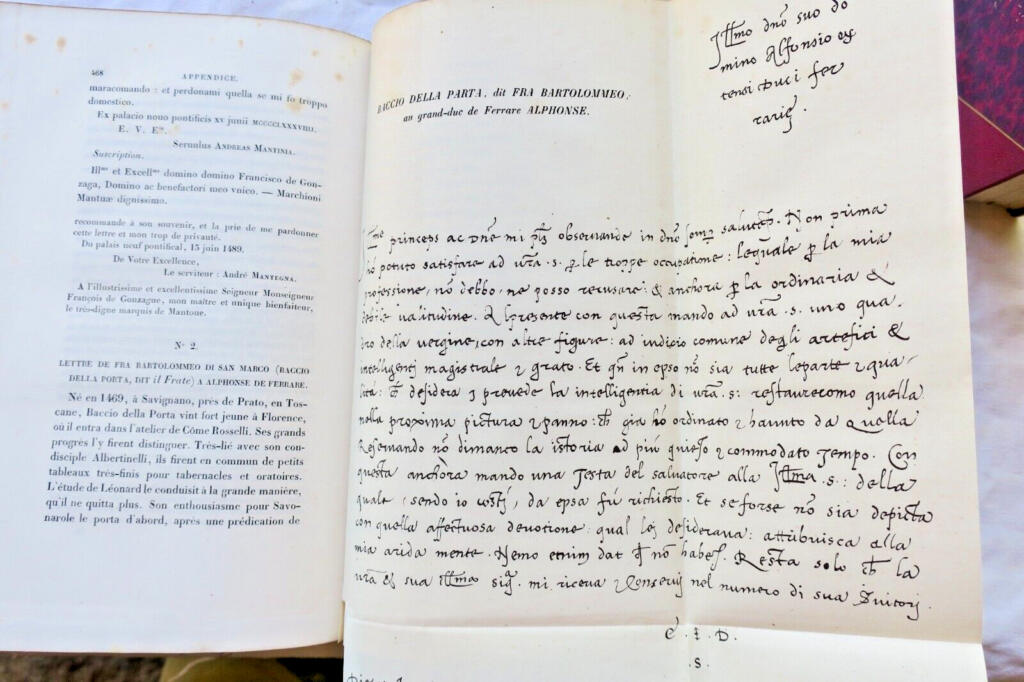 468 APPENDICE.
maracomando : et perdonami quella se mi fo troppo
domestico.
Ex palacio nouo pontificis xv junii MCCCCLXXXVIIIJ.
E. V. Eᵃ.
Seruulus ANDREAS MANTINIA.
Suscription.
Illᵐᵒ et Excellᵐᵒ domino domino Francisco de Gon-
zaga, Domino ac benefactori meo vnico. — Marchioni
Mantuæ dignissimo.
recommande à son souvenir, et la prie de me pardonner
cette lettre et mon trop de privauté.
Du palais neuf pontifical, 15 juin 1489.
De Votre Excellence,
Le serviteur : André MANTEGNA.
A l'illustrissime et excellentissime Seigneur Monseigneur
François de Gonzague, mon maître et unique bienfaiteur,
le très-digne marquis de Mantoue.
N° 2.
LETTRE DE FRA BARTOLOMMEO DI SAN MARCO (BACCIO
DELLA PORTA, DIT il Frate) A ALPHONSE DE FERRARE.
Né en 1469, à Savignano, près de Prato, en Tos-
cane, Baccio della Porta vint fort jeune à Florence,
où il entra dans l'atelier de Côme Rosselli. Ses grands
progrès l'y firent distinguer. Très-lié avec son con-
disciple Albertinelli, ils firent en commun de petits
tableaux très-finis pour tabernacles et oratoires.
L'étude de Léonard le conduisit à la grande manière,
qu'il ne quitta plus. Son enthousiasme pour Savo-
narole le porta d'abord, après une prédication de
BACCIO DELLA PARTA, dit FRA BARTOLOMMEO,
au grand-duc de Ferrare ALPHONSE.
Jllmo dnō suo do
mino Alfonsio ex
tensi Duci fer
rariȩ
princeps ac Dnē mi observande in dnō salutem. Non prima
hō potuto satisfare ad vrā .s. ꝑ le troppe occupatione : lequale ꝑ la mia
professione, nō debbo, ne posso recusare : & anchora ꝑ la ordinaria &
debile valitudine. Al presente con questa mando ad vrā .s. uno qua.
dro della vergine, con altre figure : ad iudicio comune degli artefici &
intelligenti magistrale & grato. Et in epso nō sia tutte le parte & qua
lità : desidera & prevede la intelligentia di vrā .s: restaurecomo quella
nella proxima pictura & panno : già hō ordinato & havuto da quella
Resernando nō dimanco la istoria ad più quieto & commodato tempo. Con
questa anchora mando una Testa del salvatore alla Jllma .s : della
quale, sendo io costì, da epsa fú richiesto. Et se forse nō sia depicta
con quella affectuosa devotione : qual lei desiderava : attribuisca alla
mia arida mente. Nemo etnim dat nō habet. Resta solo la
vrā & sua Jllma sig. mi riceva & conservi nel numero di sua Suitori.
C. I. D.
.S.